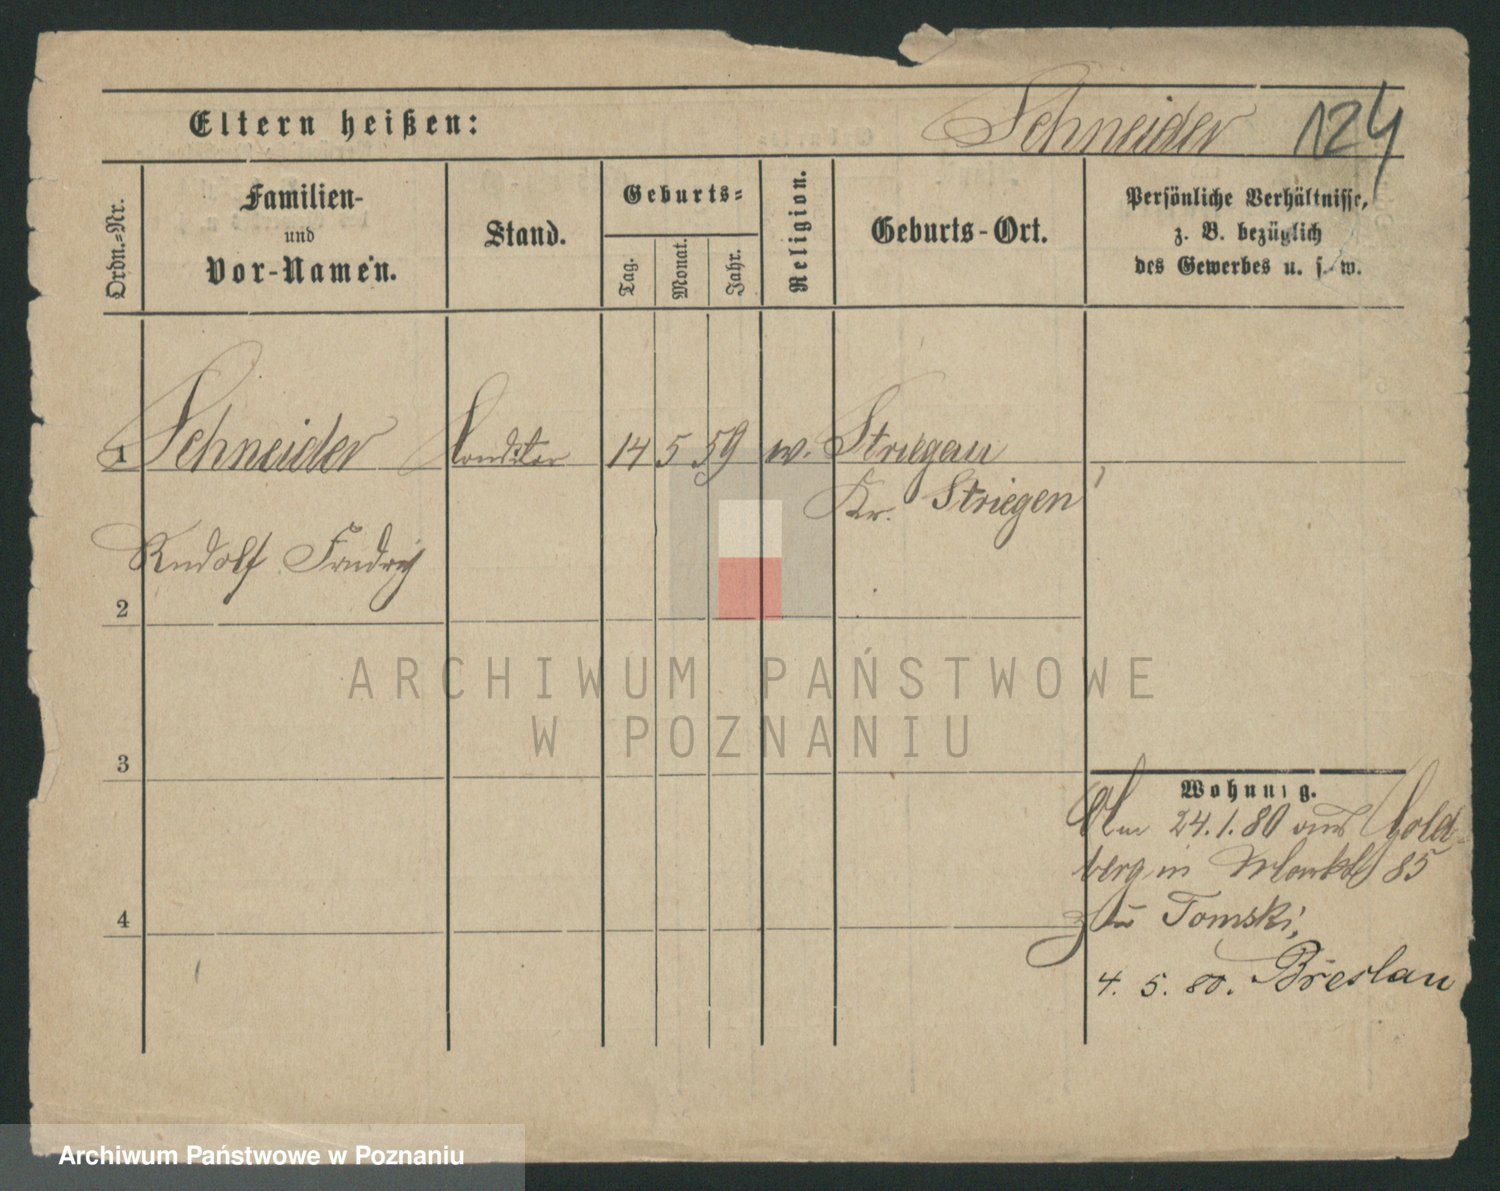 Eltern heißen:
Schneider 124
Ordn.-Nr.
Familien-
und
Vor-Namen.
Stand.
Geburts-
Tag.
Monat.
Jahr.
Religion.
Geburts-Ort.
Persönliche Verhältnisse,
z. B. bezüglich
des Gewerbes u. s. w.
1 Schneider Conditor 14 5 59 Striegau
Kr. Striegen
Rudolf Friedrich
2
3
4
Wohnung.
Am 24.1.80 aus Gold-
berg in Markt 85
zu Tomski,
4. 5. 80. Breslau
ARCHIWUM PAŃSTWOWE
W POZNANIU
Archiwum Państwowe w Poznaniu